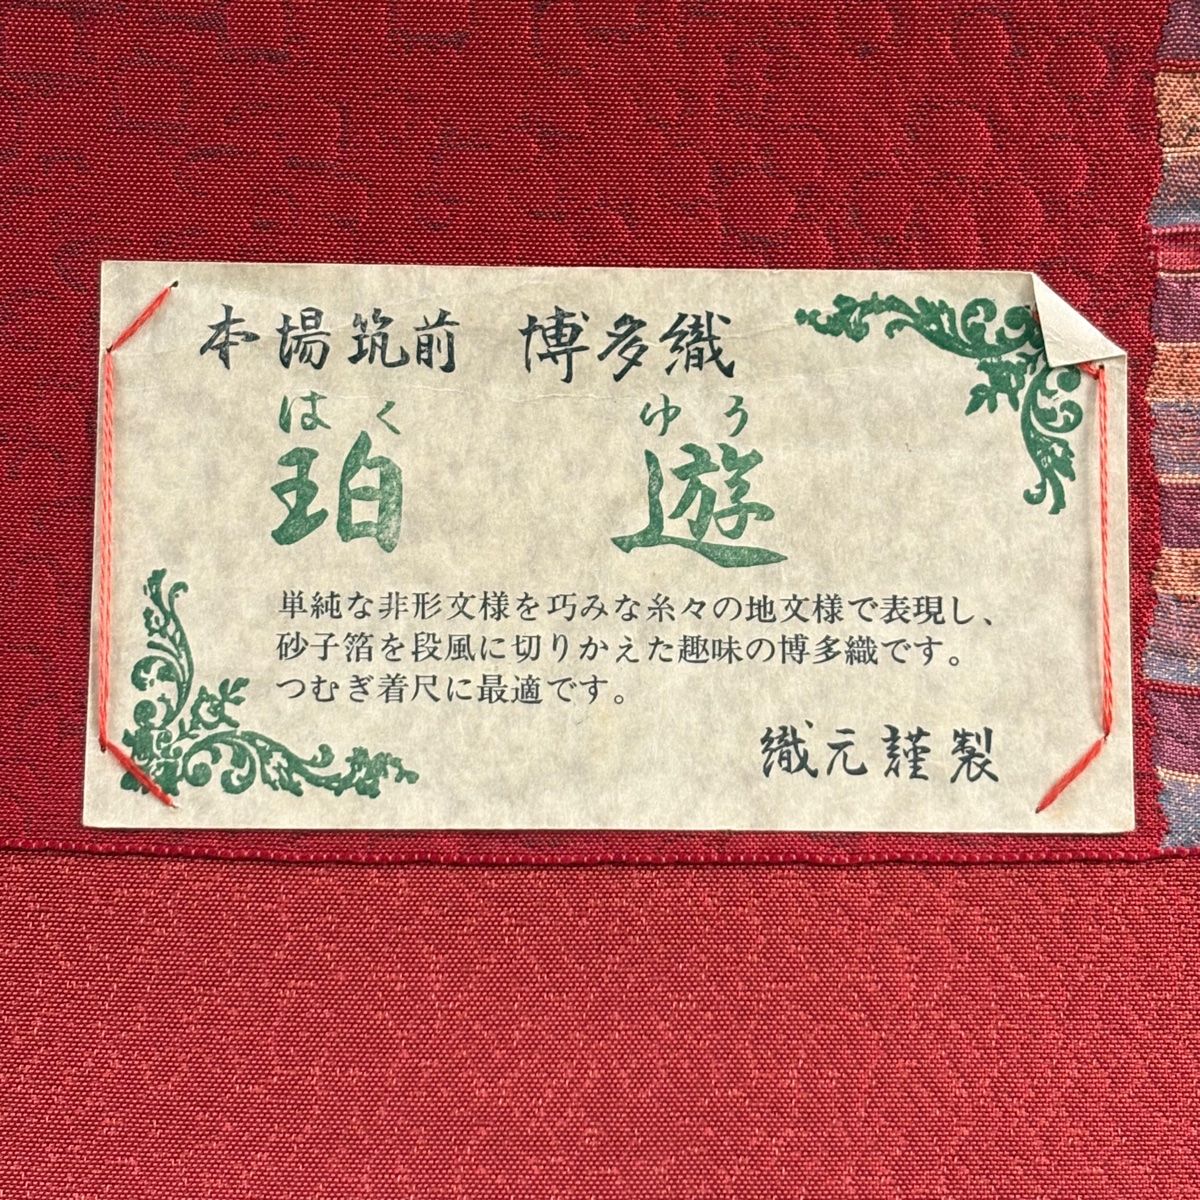 本場筑前 博多織
はく ゆう
珀遊
単純な非形文様を巧みな糸々の地文様で表現し、
砂子箔を段風に切りかえた趣味の博多織です。
つむぎ着尺に最適です。
織元謹製